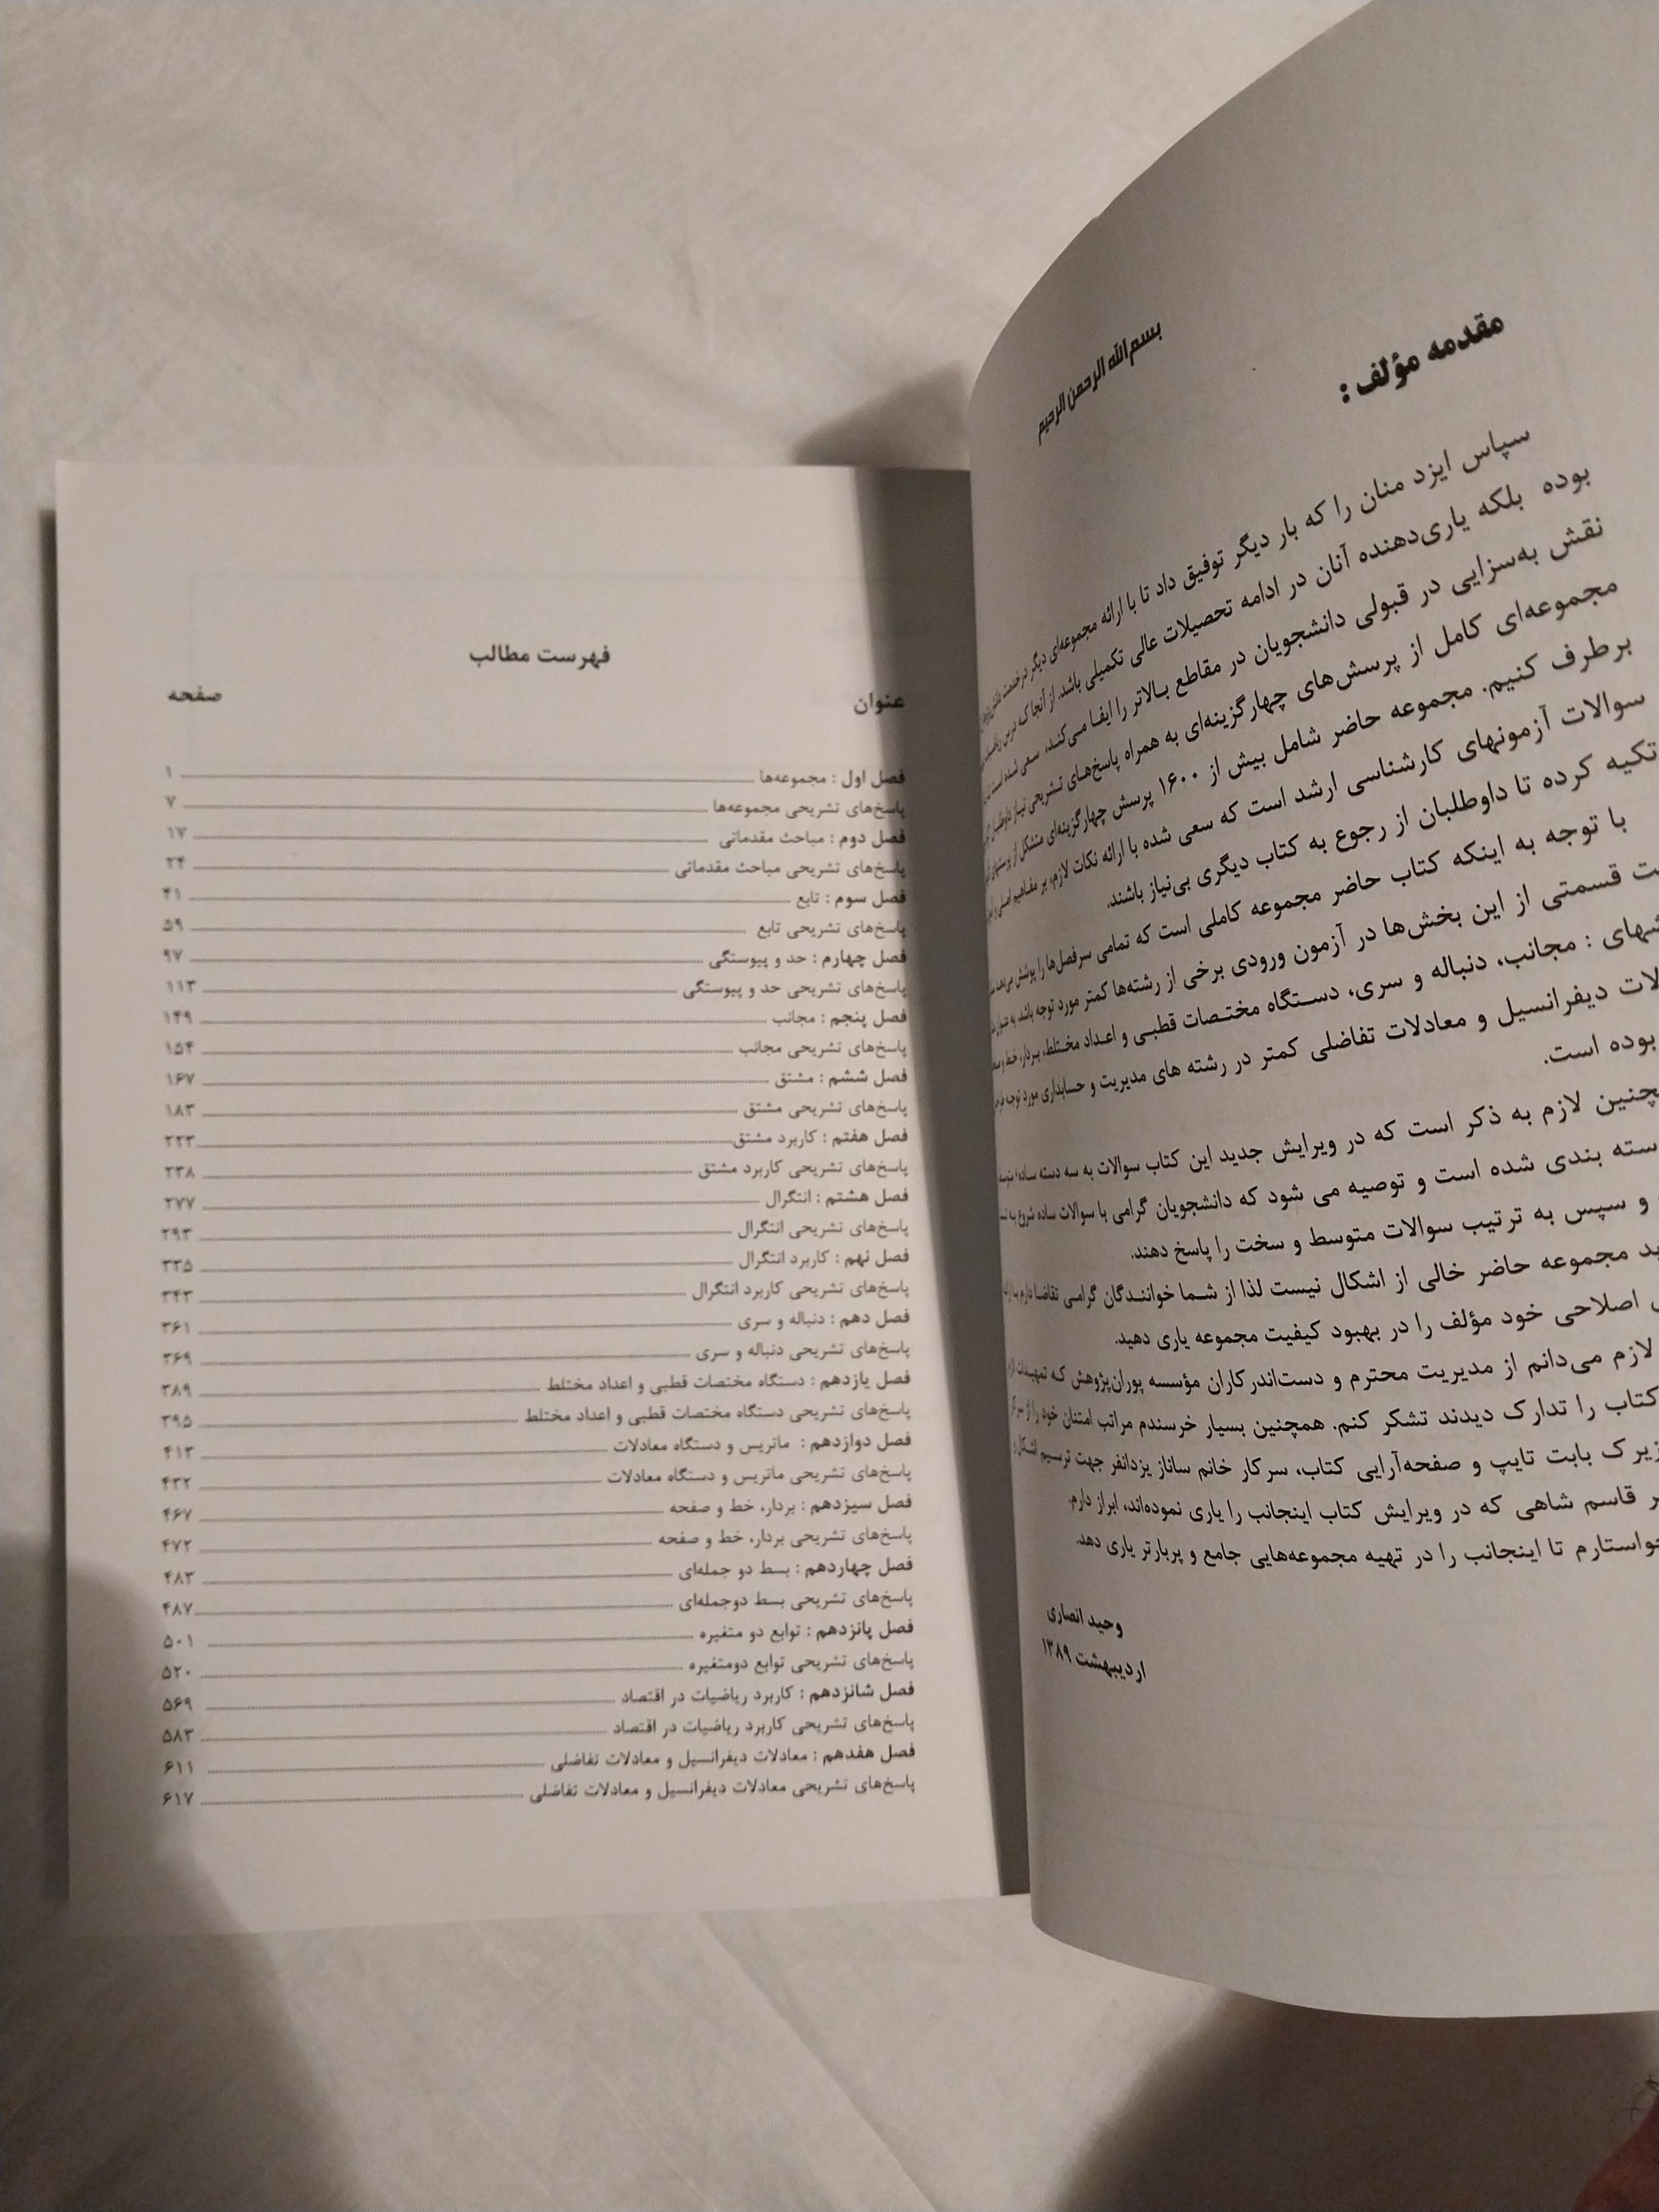 بسم‌الله الرحمن الرحیم
مقدمه مؤلف :
سپاس ایزد منان را که بار دیگر توفیق داد تا با ارائه مجموعه‌ای دیگر در خدمت
بوده بلکه یاری‌دهنده آنان در ادامه تحصیلات عالی تکمیلی باشد. از آنجا که درس
نقش به‌سزایی در قبولی دانشجویان در مقاطع بالاتر را ایفا می‌کند، سعی شده است
مجموعه‌ای کامل از پرسش‌های چهارگزینه‌ای به همراه پاسخ‌های تشریحی نیاز
برطرف کنیم. مجموعه حاضر شامل بیش از ۱۶۰۰ پرسش چهارگزینه‌ای متشکل از
سوالات آزمونهای کارشناسی ارشد است که سعی شده با ارائه نکات لازم، بر مفاهیم اصلی
تکیه کرده تا داوطلبان از رجوع به کتاب دیگری بی‌نیاز باشند.
با توجه به اینکه کتاب حاضر مجموعه کاملی است که تمامی سرفصل‌ها را پوشش می‌دهد
قسمتی از این بخش‌ها در آزمون ورودی برخی از رشته‌ها کمتر مورد توجه باشد. به عنوان
: مجانب، دنباله و سری، دستگاه مختصات قطبی و اعداد مختلط، بردار، خط و
دیفرانسیل و معادلات تفاضلی کمتر در رشته های مدیریت و حسابداری مورد توجه
بوده است.
لازم به ذکر است که در ویرایش جدید این کتاب سوالات به سه دسته ساده، متوسط
بندی شده است و توصیه می شود که دانشجویان گرامی با سوالات ساده شروع به
و سپس به ترتیب سوالات متوسط و سخت را پاسخ دهند.
مجموعه حاضر خالی از اشکال نیست لذا از شما خوانندگان گرامی تقاضا دارم با
اصلاحی خود مؤلف را در بهبود کیفیت مجموعه یاری دهید.
لازم می‌دانم از مدیریت محترم و دست‌اندرکاران مؤسسه پوران‌پژوهش که تمهیدات
کتاب را تدارک دیدند تشکر کنم. همچنین بسیار خرسندم مراتب امتنان خود را از
زیرک بابت تایپ و صفحه‌آرایی کتاب، سرکار خانم ساناز یزدانفر جهت ترسیم
قاسم شاهی که در ویرایش کتاب اینجانب را یاری نموده‌اند، ابراز دارم.
تا اینجانب را در تهیه مجموعه‌هایی جامع و پربارتر یاری دهد.
وحید انصاری
اردیبهشت ۱۳۸۹
فهرست مطالب
عنوان صفحه
فصل اول : مجموعه‌ها ۱
پاسخ‌های تشریحی مجموعه‌ها ۷
فصل دوم : مباحث مقدماتی ۱۷
پاسخ‌های تشریحی مباحث مقدماتی ۲۴
فصل سوم : تابع ۴۱
پاسخ‌های تشریحی تابع ۵۹
فصل چهارم : حد و پیوستگی ۹۷
پاسخ‌های تشریحی حد و پیوستگی ۱۱۳
فصل پنجم : مجانب ۱۴۹
پاسخ‌های تشریحی مجانب ۱۵۴
فصل ششم : مشتق ۱۶۷
پاسخ‌های تشریحی مشتق ۱۸۳
فصل هفتم : کاربرد مشتق ۲۲۳
پاسخ‌های تشریحی کاربرد مشتق ۲۳۸
فصل هشتم : انتگرال ۲۷۷
پاسخ‌های تشریحی انتگرال ۲۹۳
فصل نهم : کاربرد انتگرال ۳۳۵
پاسخ‌های تشریحی کاربرد انتگرال ۳۴۳
فصل دهم : دنباله و سری ۳۶۱
پاسخ‌های تشریحی دنباله و سری ۳۶۹
فصل یازدهم : دستگاه مختصات قطبی و اعداد مختلط ۳۸۹
پاسخ‌های تشریحی دستگاه مختصات قطبی و اعداد مختلط ۳۹۵
فصل دوازدهم : ماتریس و دستگاه معادلات ۴۱۳
پاسخ‌های تشریحی ماتریس و دستگاه معادلات ۴۳۲
فصل سیزدهم : بردار، خط و صفحه ۴۶۷
پاسخ‌های تشریحی بردار، خط و صفحه ۴۷۲
فصل چهاردهم : بسط دو جمله‌ای ۴۸۳
پاسخ‌های تشریحی بسط دوجمله‌ای ۴۸۷
فصل پانزدهم : توابع دو متغیره ۵۰۱
پاسخ‌های تشریحی توابع دومتغیره ۵۲۰
فصل شانزدهم : کاربرد ریاضیات در اقتصاد ۵۶۹
پاسخ‌های تشریحی کاربرد ریاضیات در اقتصاد ۵۸۳
فصل هفدهم : معادلات دیفرانسیل و معادلات تفاضلی ۶۱۱
پاسخ‌های تشریحی معادلات دیفرانسیل و معادلات تفاضلی ۶۱۷